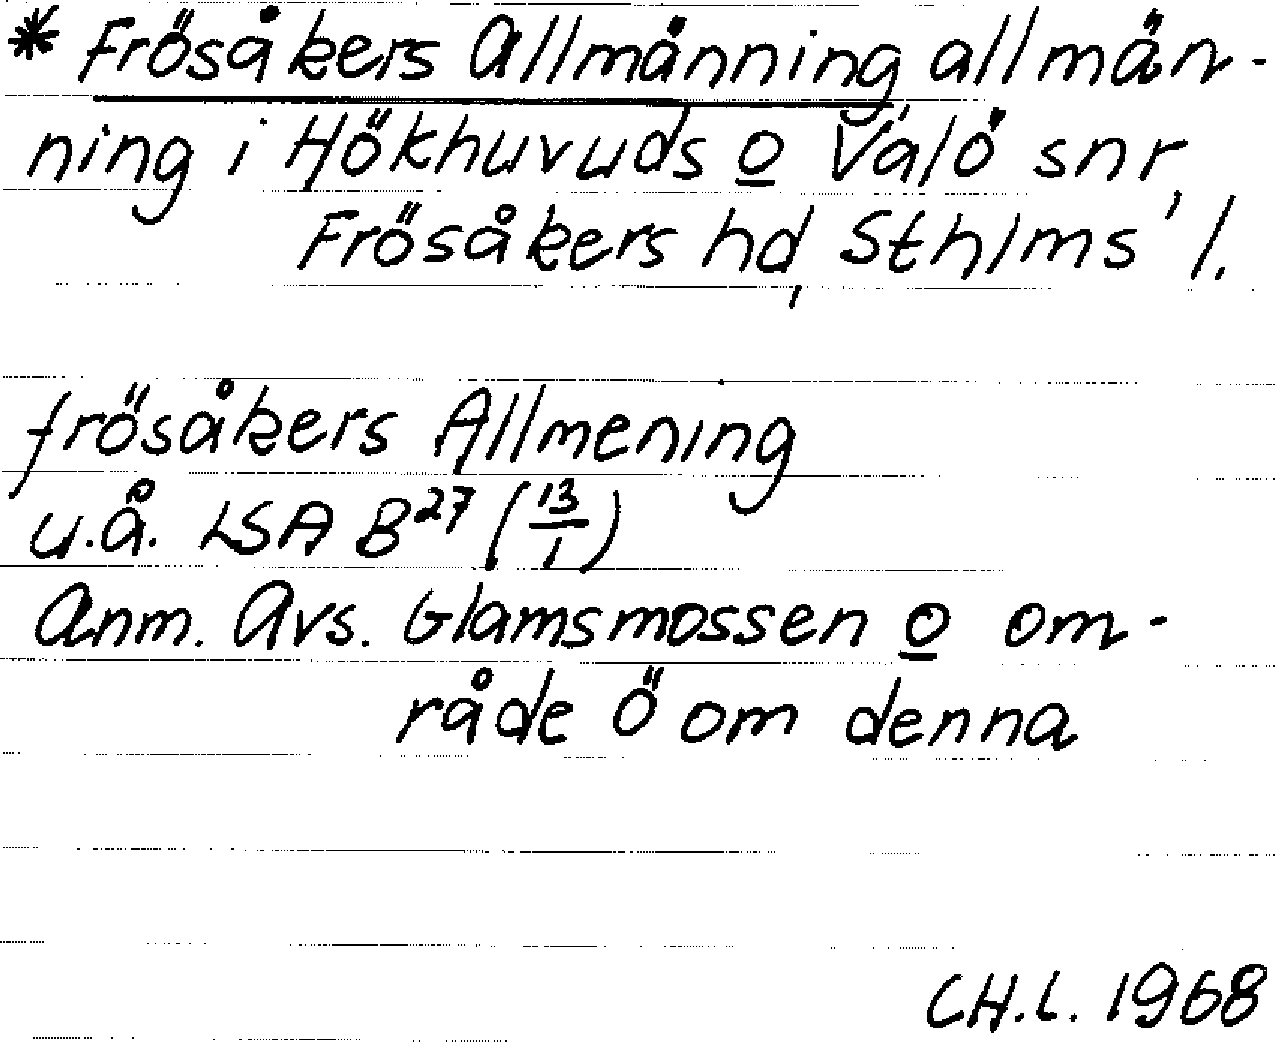 * Frösåkers Allmänning allmän-
ning i Hökhuvuds o Valö snr,
Frösåkers hd, Sthlms l.
frösåkers Allmening
u.å. LSA B27 (13/1)
Anm. Avs. Glamsmossen o om-
råde Ö om denna
CH.L. 1968